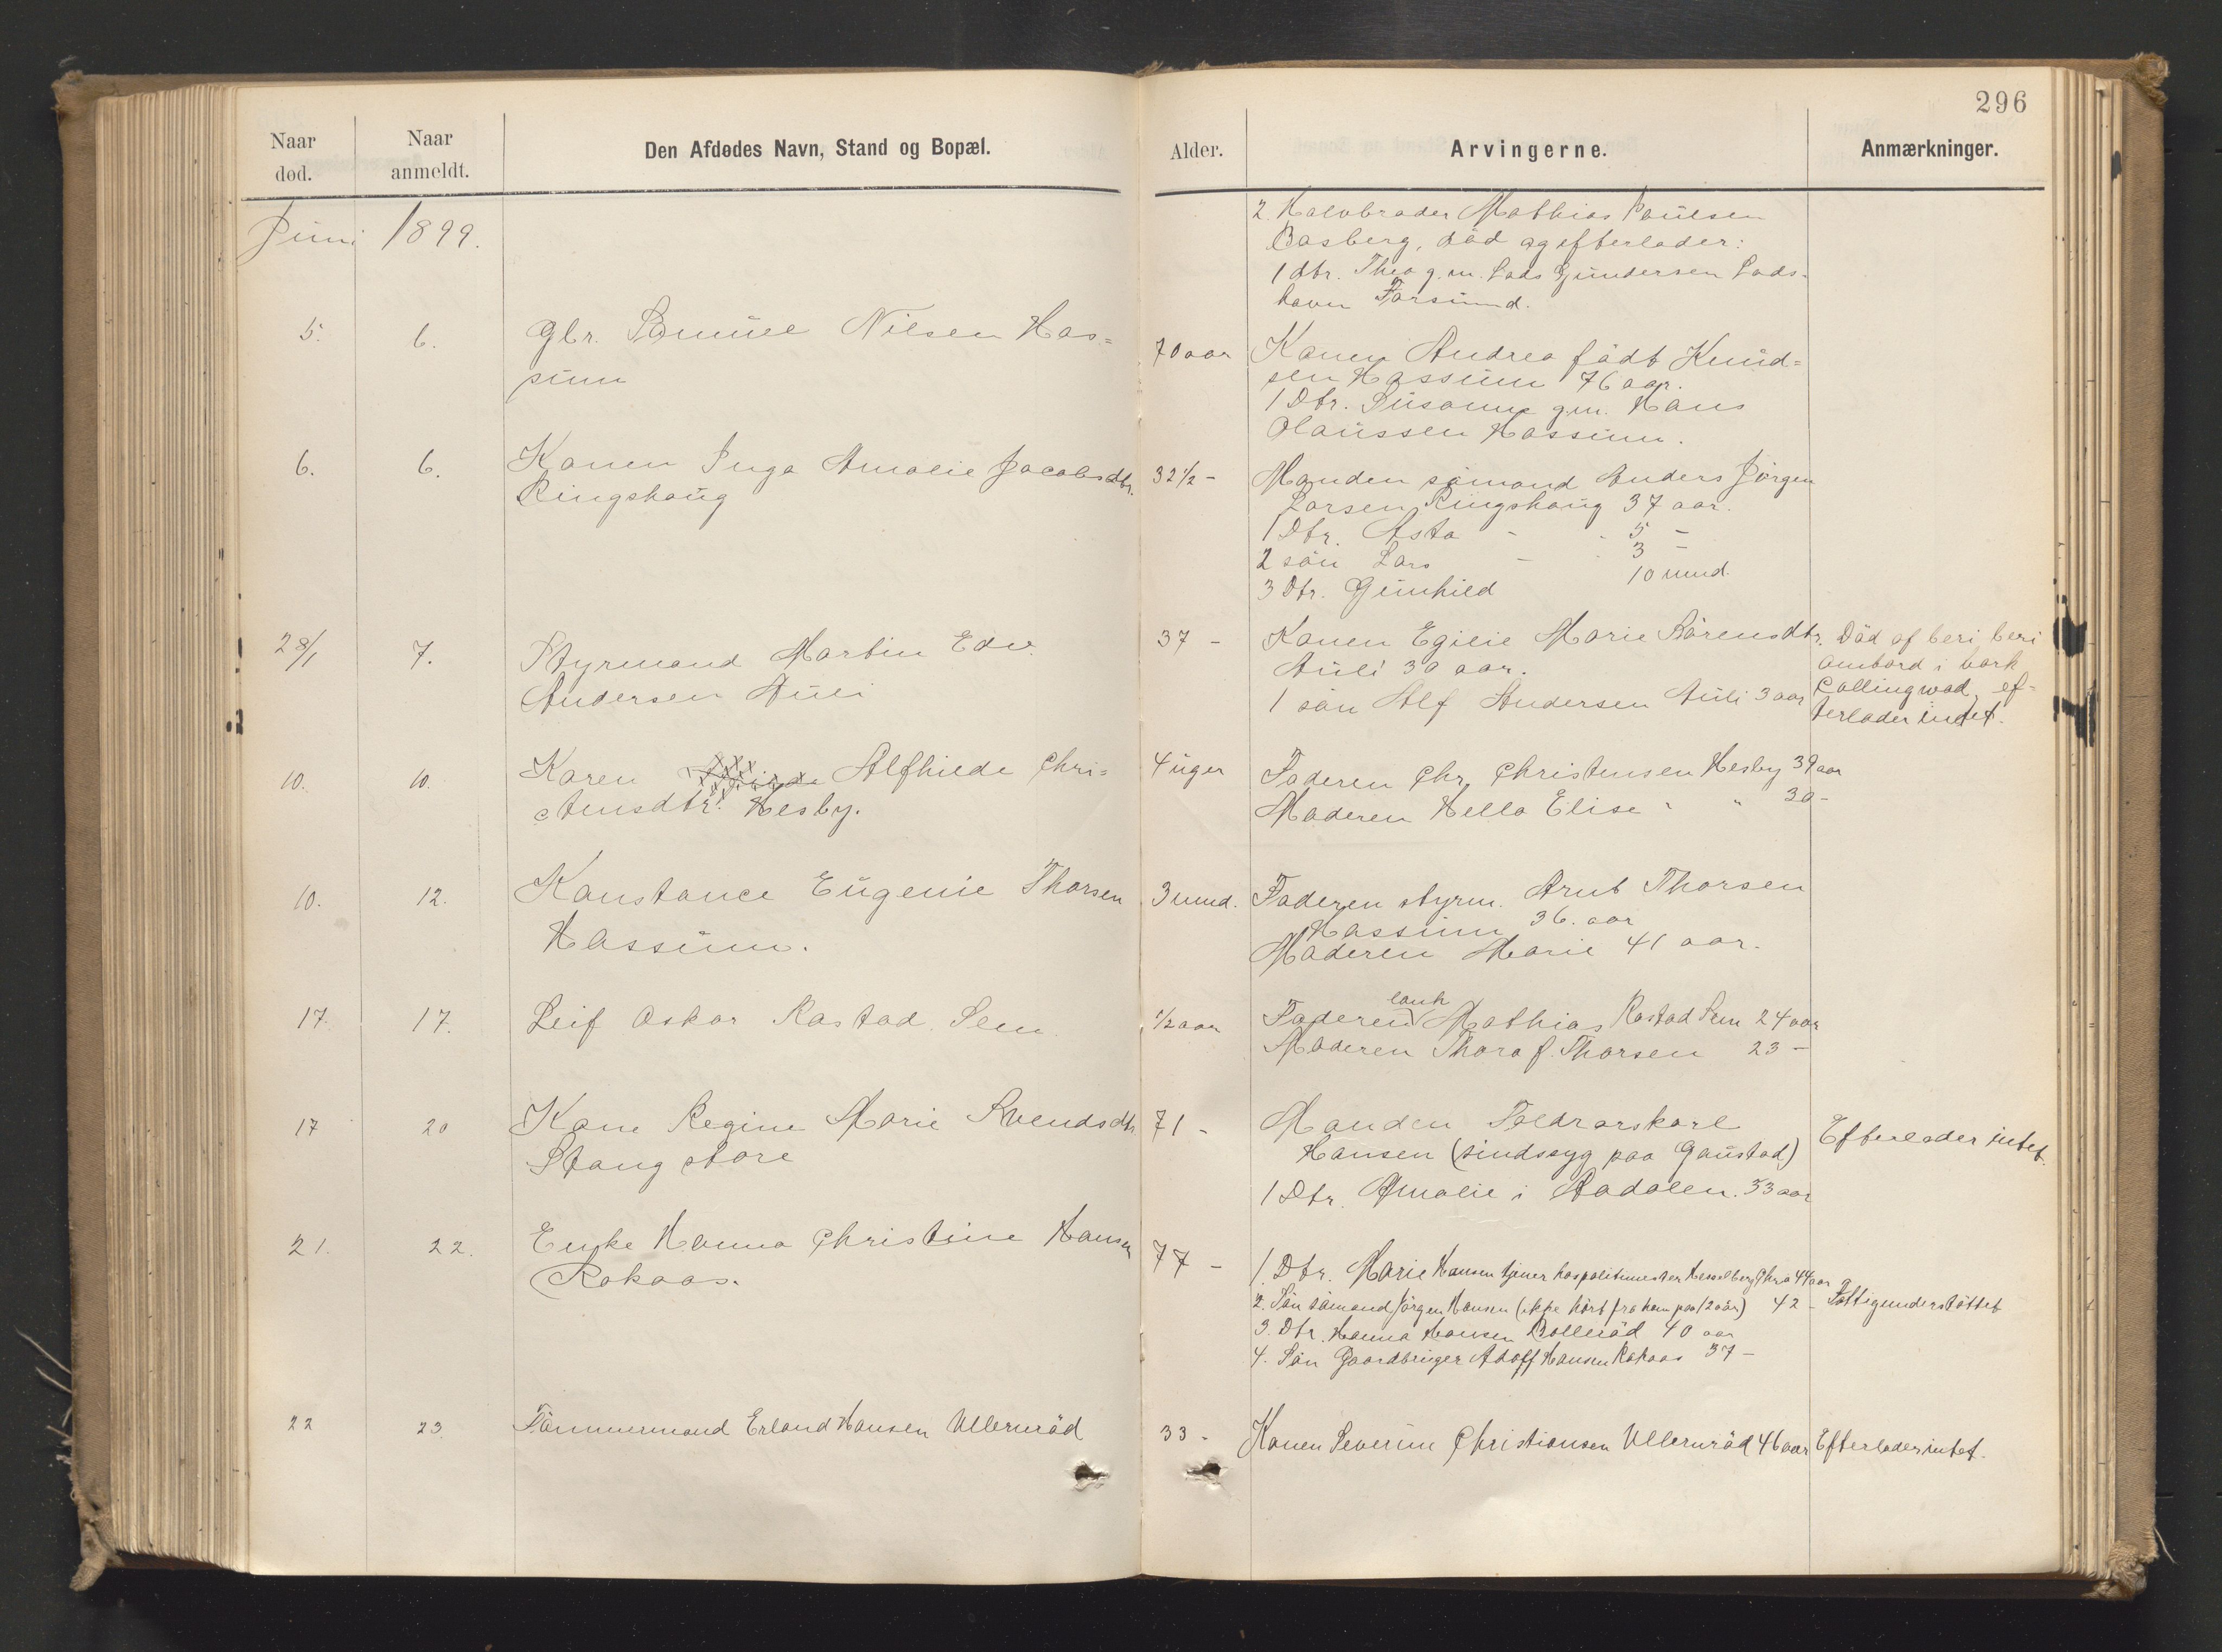 296
Naar død. Naar anmeldt. Den Afdødes Navn, Stand og Bopæl. Alder. Arvingerne. Anmærkninger.
Juni 1899.
2. Halvbroder Mathias Paulsen
Basberg, död og efterlader:
1 dtr. Thea g.m. Lods Gundersen Lods-
havn Farsund.
5. 6. Gbr. Samuel Nilsen Has=
sum
70 aar
Konen Andrea födt Knud=
sen Hassum 76 aar.
1 Dtr. Susanne g.m. Hans
Olaussen Hassum.
6. 6. Konen Inga Amalie Jacobsdtr.
Ringshaug
32 1/2 -
Manden sömand Anders Jörgen
Larsen Ringshaug 37 aar.
1 Dtr. Asta - - 5 -
2 sön Lars - - 3 -
3 Dtr. Gunhild 10 mnd.
28/1 7. Styrmand Martin Edv.
Andersen Auli
37 -
Konen Egilie Marie Sörensdtr.
Auli 30 aar.
1 sön Alf Andersen Auli 3 aar
Död af beri beri
ombord i bark
Collingwod, ef=
terlader intet.
10. 10. Karen Alfhilde Chri=
stensdtr. Hesby.
4 uger
Faderen Chr. Christensen Hesby 39 aar
Moderen Hella Elise " " 30 -
10. 12. Konstance Eugenie Thorsen
Hassum.
3 mnd.
Faderen styrm. Arnt Thorsen
Hassum 36. aar
Moderen Marie 41 aar.
17. 17. Leif Oskar Rastad Sem
1/2 aar
Faderen Mathias Rastad Sem 24 aar
Moderen Thora f. Thorsen 23 -
17 20 Kone Regine Marie Svendsdtr
Stang store
71 -
Manden Foldrorskarl
Hansen (sindssyg paa Gaustad)
1 Dtr. Amalie i Aadalen. 33 aar
Efterlader intet.
21. 22. Enke Hanna Christine Hansen
Rakaas.
77 -
1. Dtr. Marie Hansen tjener hos politimester Hesselberg Chra 44 aar
2. Sön sömand Jörgen Hansen (ikke hört fra ham paa 12 aar) 42 -
3. Dtr. Hanna Hansen Bolleröd 40 aar
4. Sön Gaardbruger Adolf Hansen Rakaas 37 -
Fattigunderstöttet
22 23. Tömmermand Erland Hansen Ullernröd
33 -
Konen Severine Christiansen Ullernröd 46 aar
Efterlader intet.